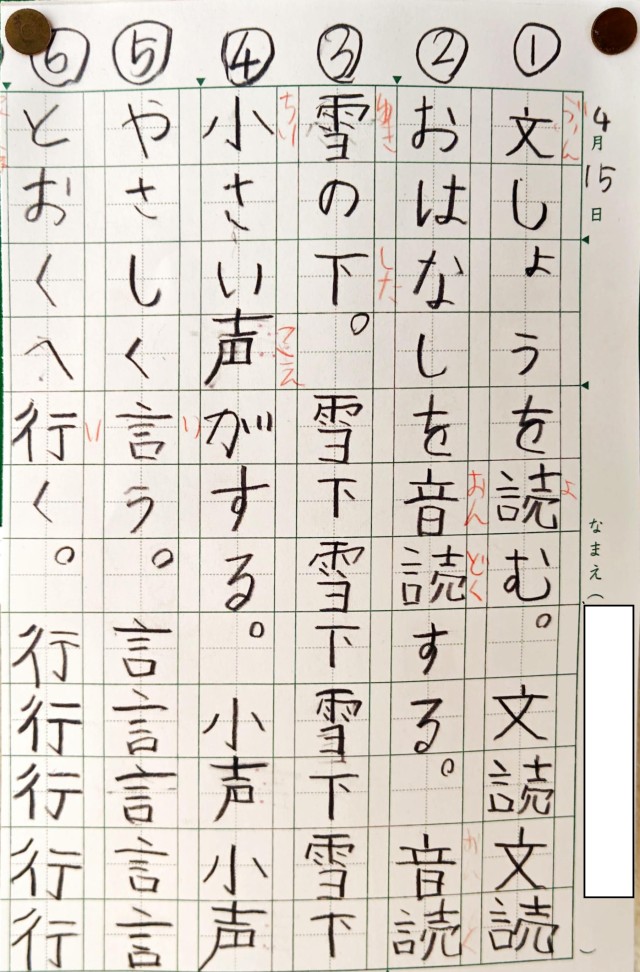 4月15日
なまえ（
）
①
文しょうを読む。文読文読
ぶん
よ
②
おはなしを音読する。音読
おん
どく
③
雪の下。雪下雪下雪下雪下
ゆき
した
④
小さい声がする。小声小声
ちい
こえ
⑤
やさしく言う。言言言言言
い
⑥
とおくへ行く。行行行行行
い